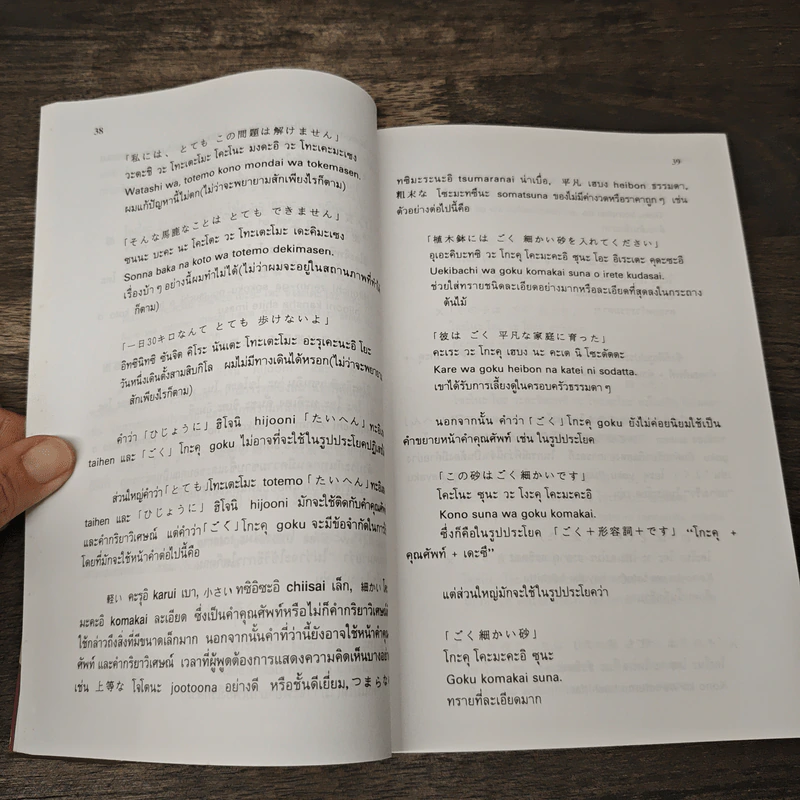 38
「私には、とても この問題は解けません」
วะตะชิ วะ โทะเตะโมะ โคะโนะ มงดะอิ วะ โทะเคะมะเซง
Watashi wa, totemo kono mondai wa tokemasen.
ผมแก้ปัญหานี้ไม่ตก(ไม่ว่าจะพยายามสักเพียงไรก็ตาม)
「そんな馬鹿なことは とても できません」
ซนนะ บะคะ นะ โคะโตะ วะ โทะเตะโมะ เดะคิมะเซง
Sonna baka na koto wa totemo dekimasen.
เรื่องบ้า ๆ อย่างนี้ผมทำไม่ได้(ไม่ว่าผมจะอยู่ในสถานภาพที่
ก็ตาม)
「一日30キロなんて とても 歩けないよ」
อิทชินิทชิ ซันจิด คิโระ นันเตะ โทะเตะโมะ อะรุเคะนะอิ โยะ
วันหนึ่งเดินตั้งสามสิบกิโล ผมไม่มีทางเดินได้หรอก(ไม่ว่าจะพยายาม
สักเพียงไรก็ตาม)
คำว่า「ひじょうに」ฮิโจนิ hijooni「たいへん」ทะอิเฮน
taihen และ「ごく」โกะคุ goku ไม่อาจที่จะใช้ในรูปประโยคปฏิเสธ
ส่วนใหญ่คำว่า「とても」โทะเตะโมะ totemo「たいへん」ทะอิเฮน
taihen และ「ひじょうに」ฮิโจนิ hijooni มักจะใช้ติดกับคำคุณศัพท์
และคำกริยาวิเศษณ์ แต่คำว่า「ごく」โกะคุ goku จะมีข้อจำกัดในการ
โดยที่มักจะใช้หน้าคำต่อไปนี้คือ
軽い คะรุอิ karui เบา, 小さい ทชิอิซะอิ chiisai เล็ก, 細かい โคะ
มะคะอิ komakai ละเอียด ซึ่งเป็นคำคุณศัพท์หรือไม่ก็คำกริยาวิเศษณ์
ใช้กล่าวถึงสิ่งที่มีขนาดเล็กมาก นอกจากนั้นคำที่ว่านี้ยังอาจใช้หน้าคำคุณ
ศัพท์ และคำกริยาวิเศษณ์ เวลาที่ผู้พูดต้องการแสดงความคิดเห็นบางอย่าง
เช่น 上等な โจโตนะ jootoona อย่างดี หรือชั้นดีเยี่ยม, つまらな
39
ทซิมะระนะอิ tsumaranai น่าเบื่อ, 平凡 เฮบง heibon ธรรมดา,
粗末な โซะมะทซึนะ somatsuna ของไม่มีค่างวดหรือราคาถูก ๆ เช่น
ตัวอย่างต่อไปนี้คือ
「植木鉢には ごく 細かい砂を入れてください」
อุเอะคิบะทชิ วะ โกะคุ โคะมะคะอิ ซุนะ โอะ อิเรเตะ คุดะซะอิ
Uekibachi wa goku komakai suna o irete kudasai.
ช่วยใส่ทรายชนิดละเอียดอย่างมากหรือละเอียดที่สุดลงในกระถาง
ต้นไม้
「彼は ごく 平凡な家庭に育った」
คะเระ วะ โกะคุ เฮบง นะ คะเต นิ โซะดัตตะ
Kare wa goku heibon na katei ni sodatta.
เขาได้รับการเลี้ยงดูในครอบครัวธรรมดา ๆ
นอกจากนั้น คำว่า「ごく」โกะคุ goku ยังไม่ค่อยนิยมใช้เป็น
คำขยายหน้าคำคุณศัพท์ เช่น ในรูปประโยค
「この砂はごく細かいです」
โคะโนะ ซุนะ วะ โงะคุ โคะมะคะอิ
Kono suna wa goku komakai.
ซึ่งก็คือในรูปประโยค 「ごく＋形容詞＋です」 “โกะคุ +
คุณศัพท์ + เดะซึ”
แต่ส่วนใหญ่มักจะใช้ในรูปประโยคว่า
「ごく細かい砂」
โกะคุ โคะมะคะอิ ซุนะ
Goku komakai suna.
ทรายที่ละเอียดมาก